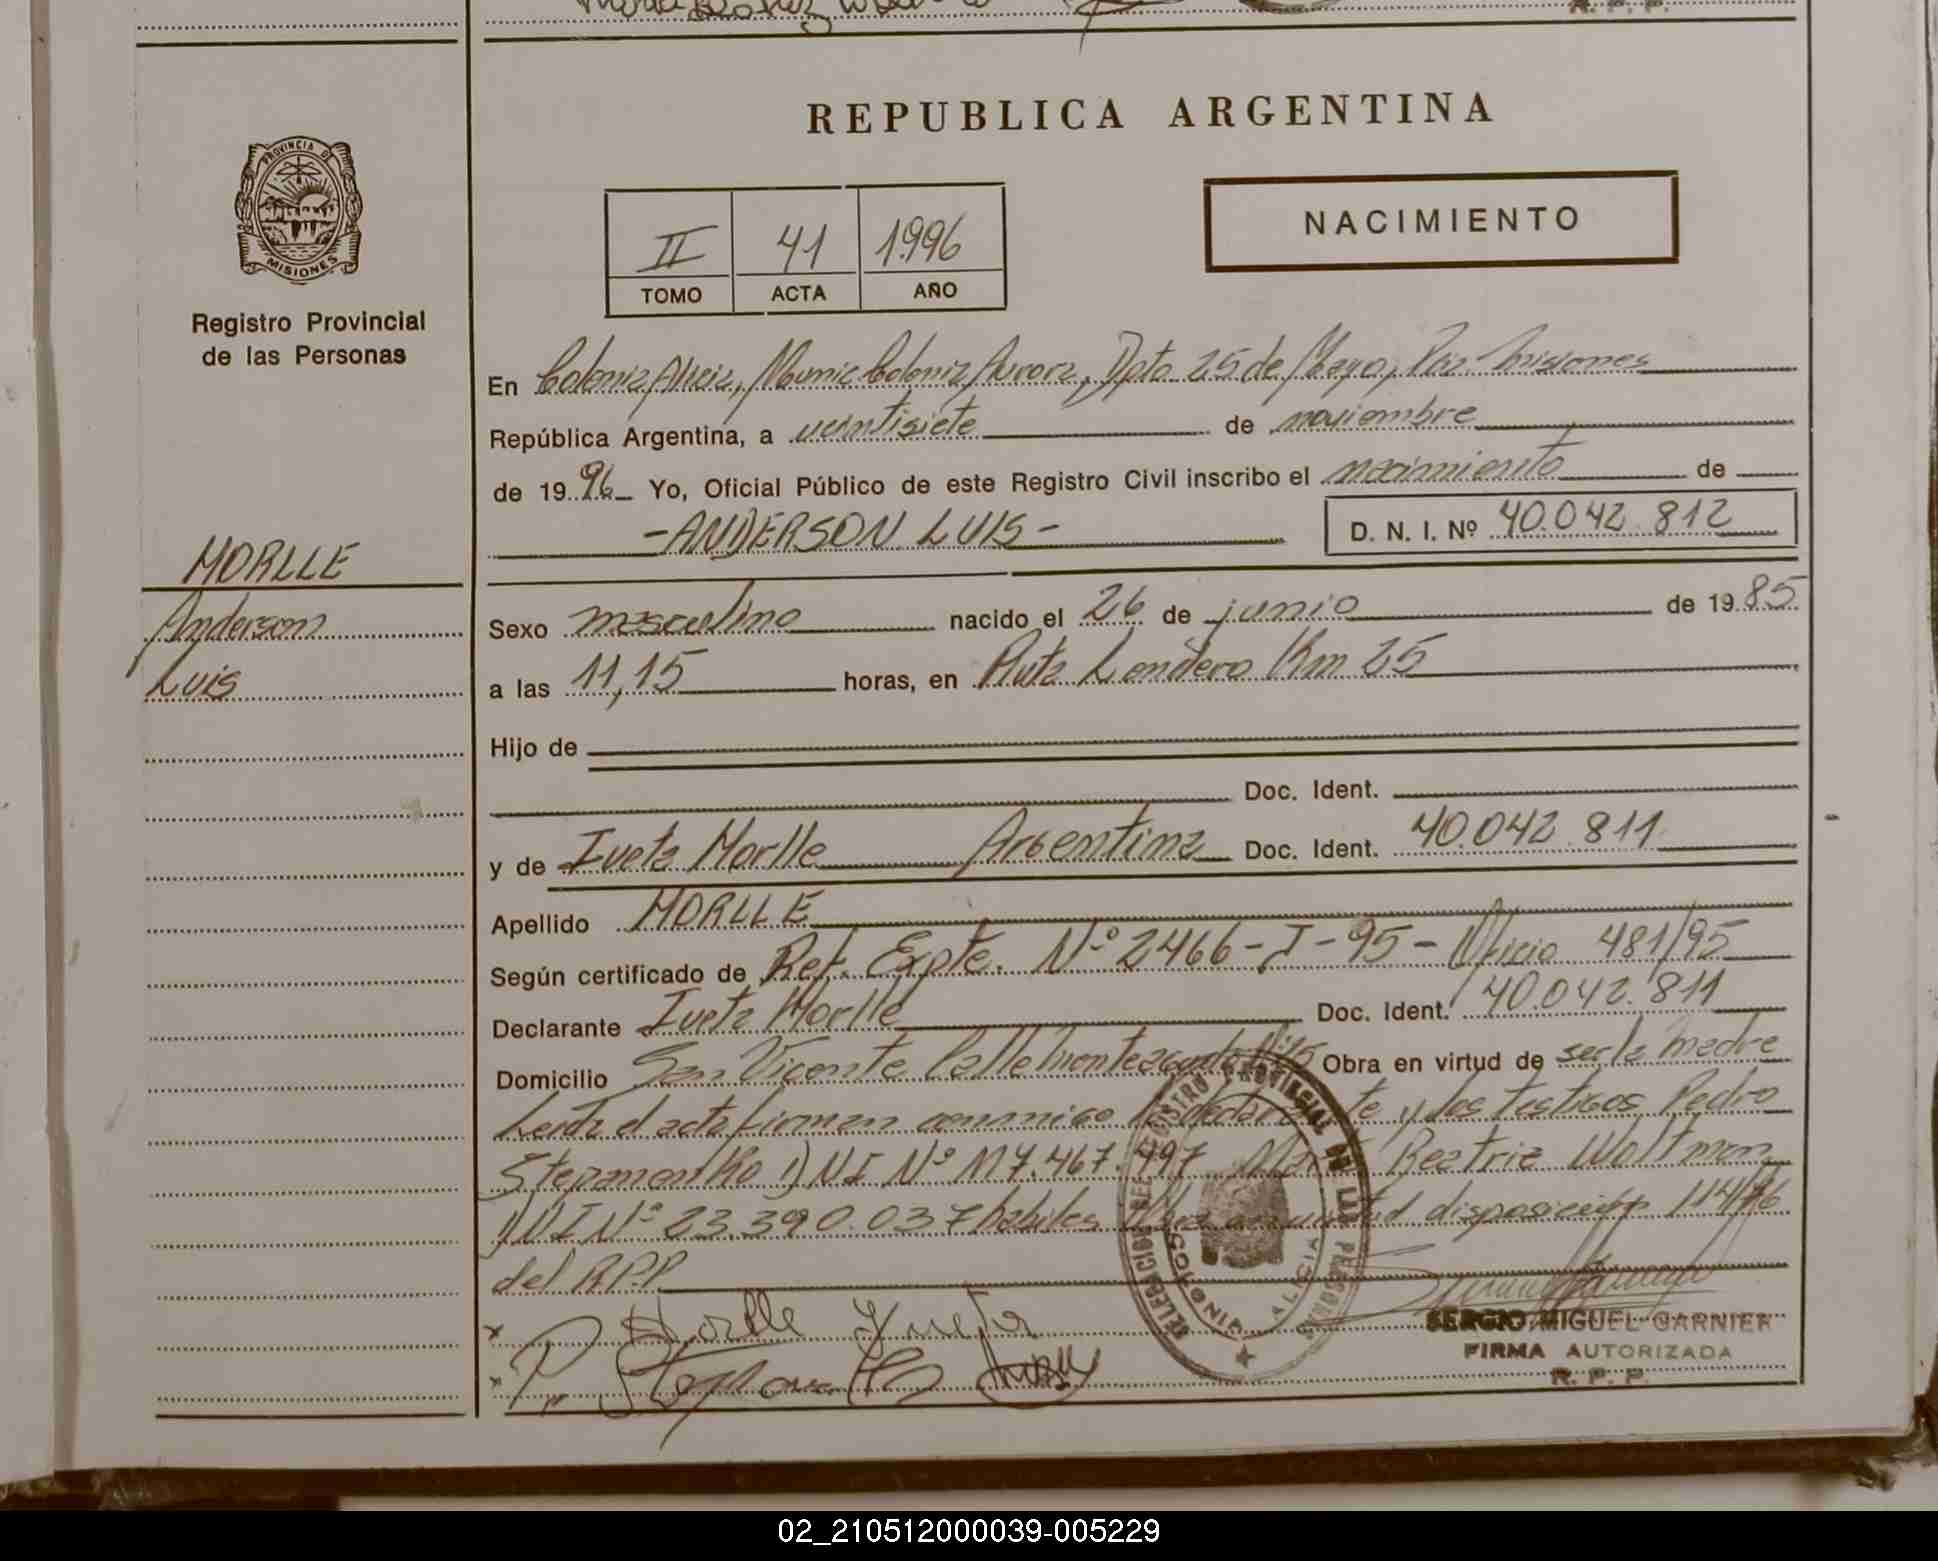 R. P. P.
REPUBLICA ARGENTINA
PROVINCIA DE
MISIONES
Registro Provincial
de las Personas
II 41 1.996
TOMO ACTA AÑO
NACIMIENTO
En Colonia Alicia, Munic Colonia Aurora, Dpto 25 de Mayo, Pcia Misiones
República Argentina, a veintisiete de noviembre
de 19 96 Yo, Oficial Público de este Registro Civil inscribo el nacimiento de
-ANDERSON LUIS- D. N. I. Nº 40.042.812
MORLLE
Anderson
Luis
Sexo masculino nacido el 26 de junio de 19 85
a las 11,15 horas, en Ruta Londero Km 25
Hijo de
Doc. Ident.
y de Iveta Morlle Argentina Doc. Ident. 40.042.811
Apellido MORLLE
Según certificado de Ref. Expte. Nº 2466-I-95- Oficio 481/95
Declarante Iveta Morlle Doc. Ident. 40.042.811
Domicilio San Vicente Calle Monteagudo Nº 15 Obra en virtud de ser la madre
Leida el acta firman conmigo la declarante y los testigos Pedro
DNI Nº M7.467.497 Beatriz Woltman
DNI Nº 23.390.037 habiles Obra en virtud disposición 114/96
del R.P.P.
Morlle Iveta
DELEGACION REGISTRO PROVINCIAL DE LAS PERSONAS
ALICIA
SERGIO MIGUEL GARNIER
FIRMA AUTORIZADA
R. P. P.
02_210512000039-005229